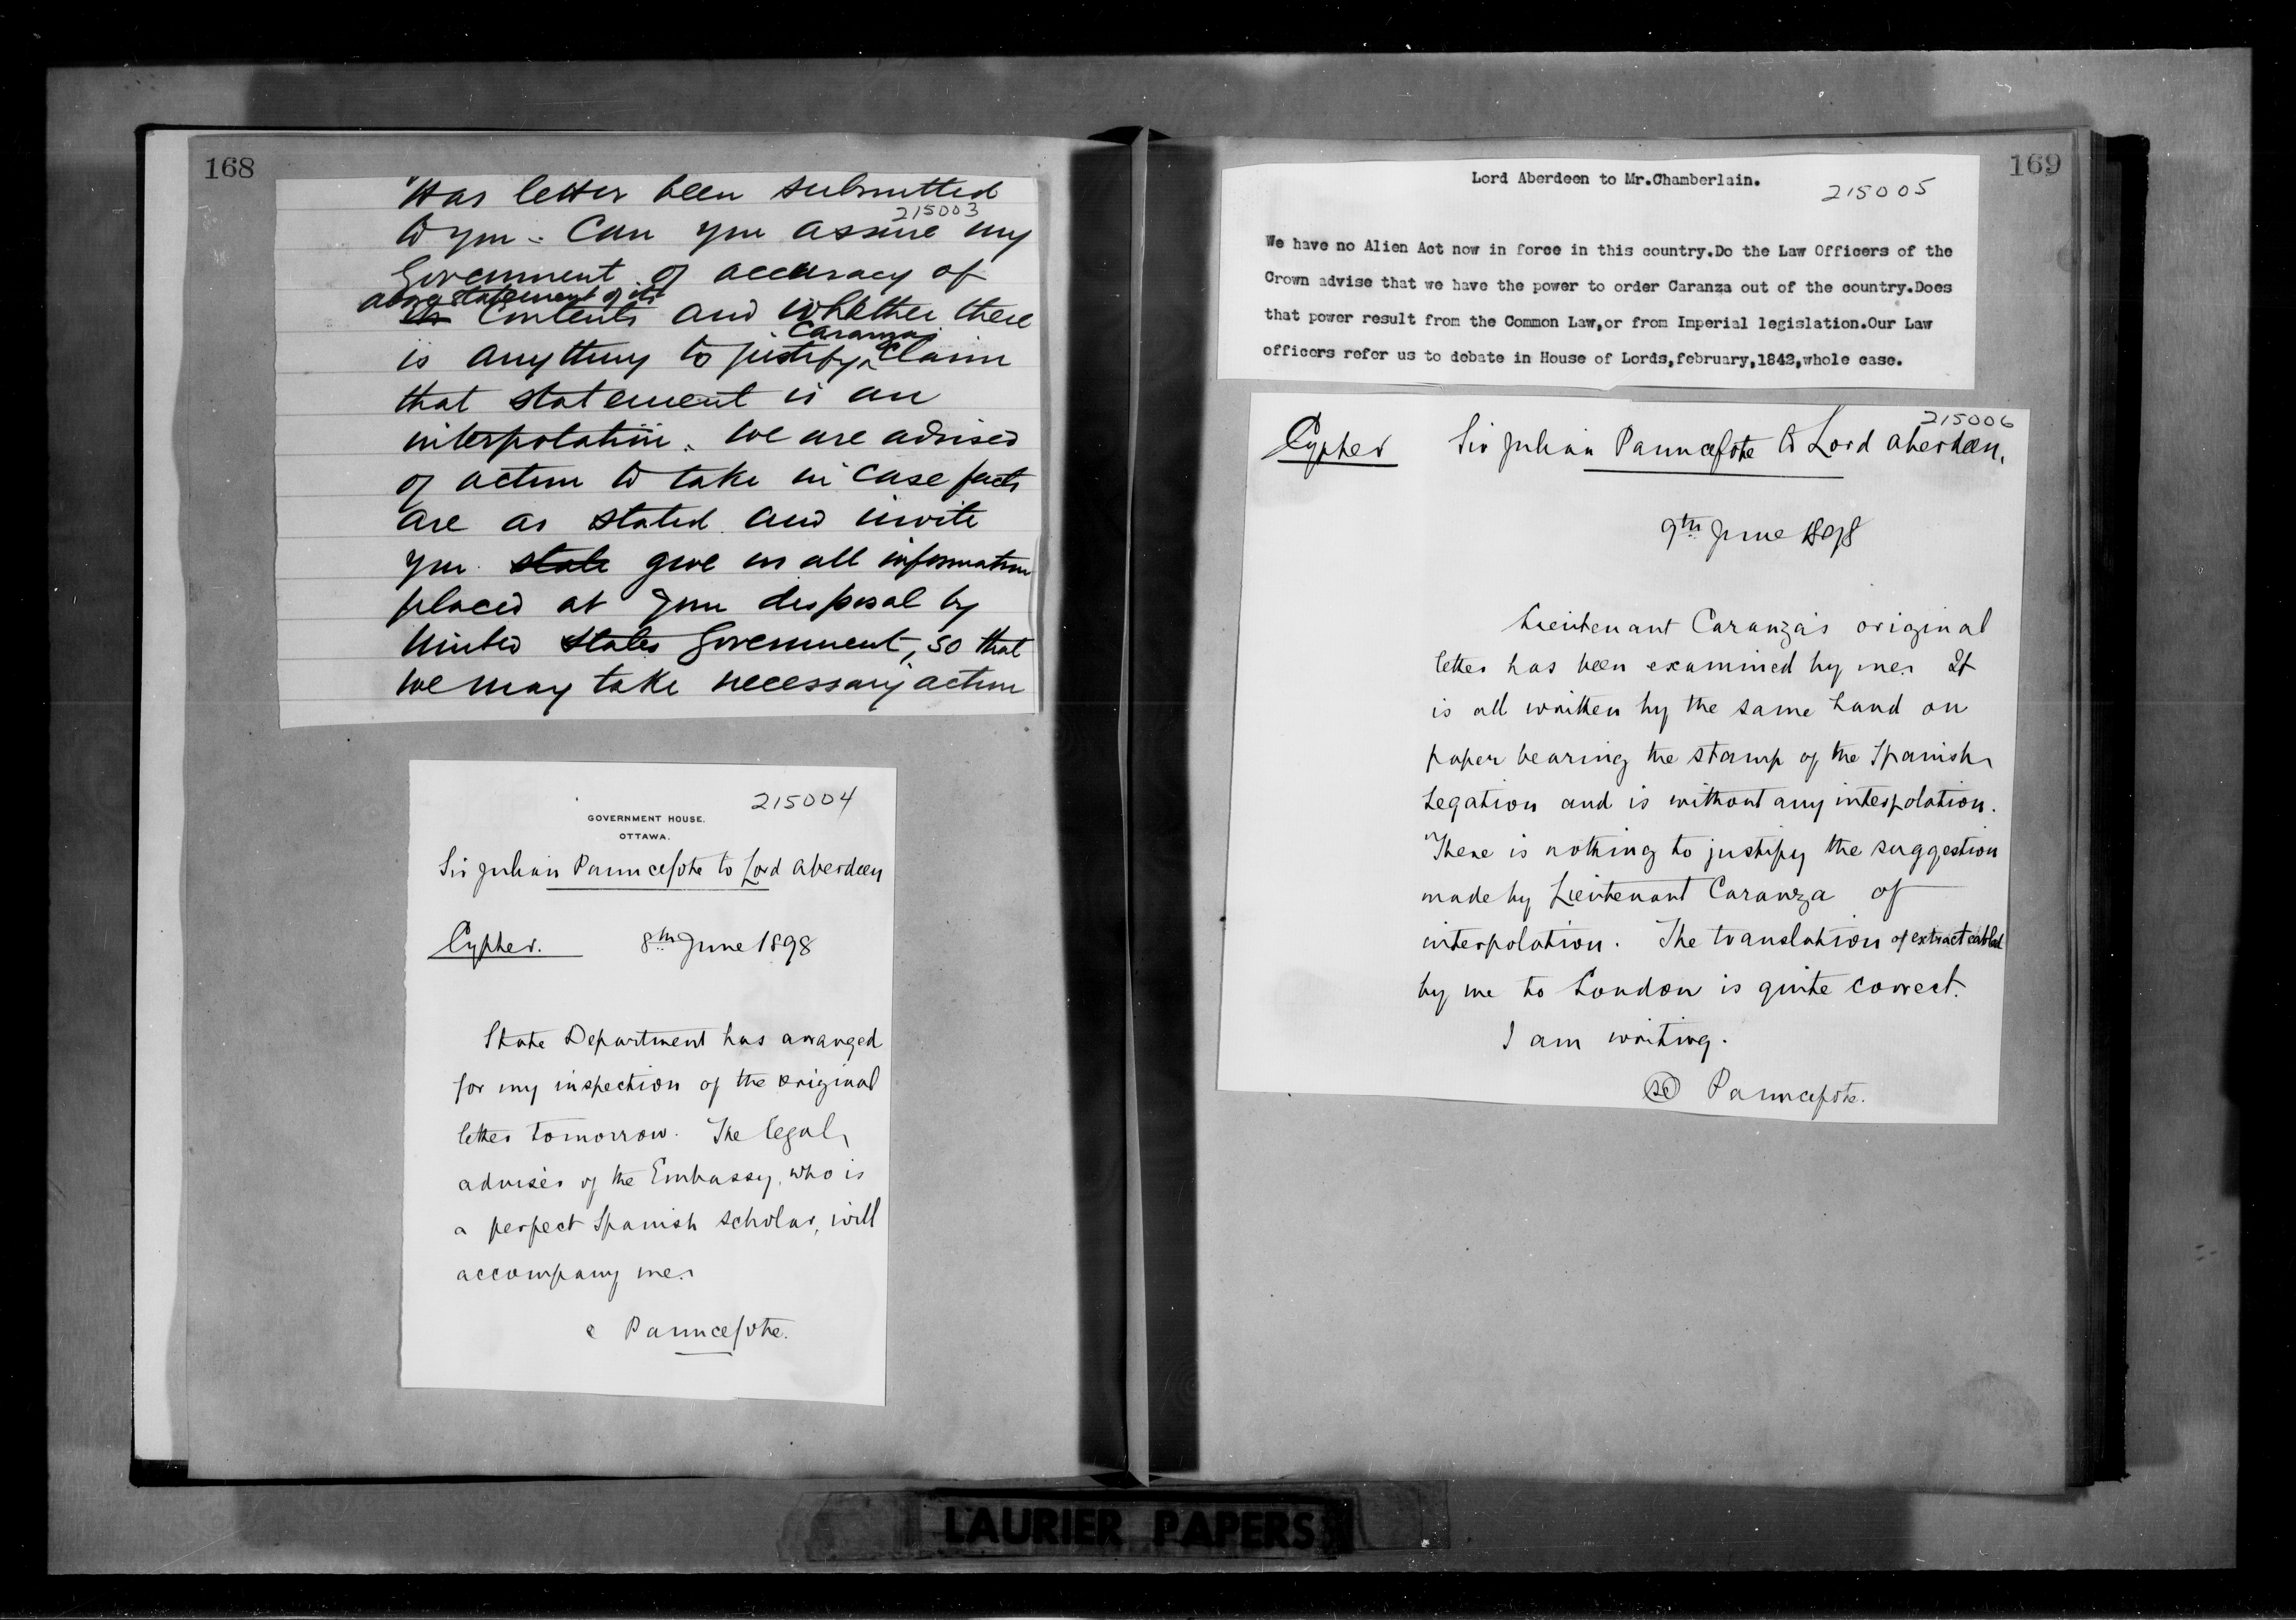 168
Has letter been submitted
215003
to you. Can you assure my
Government of accuracy of
above statement of its
its contents and whether there
Caranzas
is anything to justify claim
that statement is an
interpolation. We are advised
of action to take in case facts
are as stated and invite
you state give us all information
placed at your disposal by
United States Government, so that
we may take necessary action
215004
GOVERNMENT HOUSE.
OTTAWA.
Sir Julian Pauncefote to Lord Aberdeen
Cypher. 8th June 1898
State Department has arranged
for my inspection of the original
letter tomorrow. The legal
adviser of the Embassy, who is
a perfect Spanish scholar, will
accompany me.
Pauncefote.
169
Lord Aberdeen to Mr.Chamberlain.
215005
We have no Alien Act now in force in this country.Do the Law Officers of the
Crown advise that we have the power to order Caranza out of the country.Does
that power result from the Common Law,or from Imperial legislation.Our Law
officers refer us to debate in House of Lords,february,1842,whole case.
215006
Cypher Sir Julian Pauncefote to Lord Aberdeen.
9th June 1898
Lieutenant Caranza's original
letter has been examined by me. It
is all written by the same hand on
paper bearing the stamp of the Spanish
Legation and is without any interpolation.
There is nothing to justify the suggestion
made by Lieutenant Caranza of
interpolation. The translation of extract cabled
by me to London is quite correct.
I am writing.
sd Pauncefote.
LAURIER PAPERS